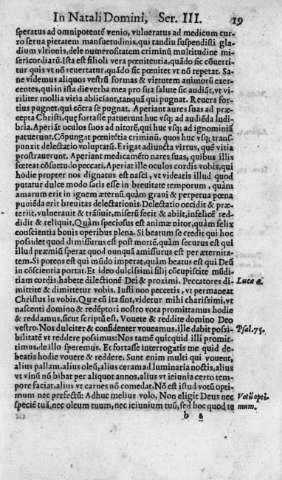 In Natali Domini, Ser. III. 19
speratus ad omnipotentē venio, vulneratus ad medicum curro
servā pietatem mansuetudinis, qui tandiu suspendisti gladium
ultionis, dele numerositatem criminū multitudine misericordiarū.
Ista est filioli vera pœnitentia, quādo sic cōvertitur
quis vt nō revertatur, quādo sic pœnitet vt nō repetat. Sane
videmus aliquos vestrū formas & virtutem animorū exerentes,
qui in ista die verba mea pro sua salute sic audiāt, vt viriliter
mollia vitia abiiciant, tanquā qui pugnat. Revera fortius
pugnet, qui cōtra se pugnat. Aperiant aures suas ad præcepta
Christi, quę fortasse patuerunt huc vsq; ad audienda ludibria.
Aperiāt oculos suos ad nitorē, qui huc vsq; ad ignominiā
patuerunt. Cōpungat pœnitētia criminū, quos huc vsq; transpunxit
delectatio voluptatū. Erigat adiuncta virtus, quē vitia
prostraverunt. Aperiant medicamēto nares suas, quibus illis
fœteat cōsuetudo peccati. Aperiat ille oculos cordis vobis, qui
hodie propter nos dignatus est nasci, vt videatis illud quod
putatur dulce modo satis esse in brevitate temporum, quàm
amarum erit in ignem æternū, quàm gravi & perpetua pœna
puniēda erit brevitas delectationis Delectatio occidit & præteriit,
vulneravit & trāsivit, miserū fecit & abiit, infelicē reddidit
& reliquit. Quàm speciosus est animæ nitor, quàm felix
conscientia bonis operibus plena. Si beatum se credit qui hoc
possidet quod dimissurus est post mortē, quàm securus est qui
illud præmiū sperat quod nunquā amissurus est per æternitatem.
Si potens est qui in mūdo imperat, quàm beatus est qui Deū
in cōscientia portat. Et ideo dulcissimi filij cōcupiscite mūditiam
cordis habete dilectionē Dei & proximi. Peccatores dimittite Luca 6.
& dimittetur vobis. Iusti non peccetis, vt permaneat
Christus in vobis. Quæ cū ita sint, videtur mihi charissimi, vt
nascenti domino & redēptori nostro vota promittamus hodie
& reddamus, sicut scriptū est. Vovete & reddite domino Deo
vestro. Nos dulciter & confidenter voveamus, ille dabit possibilitatē Psal. 75.
vt reddere possimus: Nos tamē quicquid illi promittimus,
de illo speremus. Et fortasse interrogatis me quid debeatis
hodie vovere & reddere. Sunt enim multi qui vovent,
alius pallam, alius oleū, alius ceram ad luminaria noctis, alius
vt vinū nō bibat per aliquot annos, alius vt ieiunia certo tempore
faciat, alius vt carnes nō comedat. Nō est istud votū optimum
nec perfectū: Adhuc melius volo. Non eligit Deus nec Votū optimum.
speciē tuā, nec oleum tuum, nec ieiunium tuū, sed hoc quod te
b 2